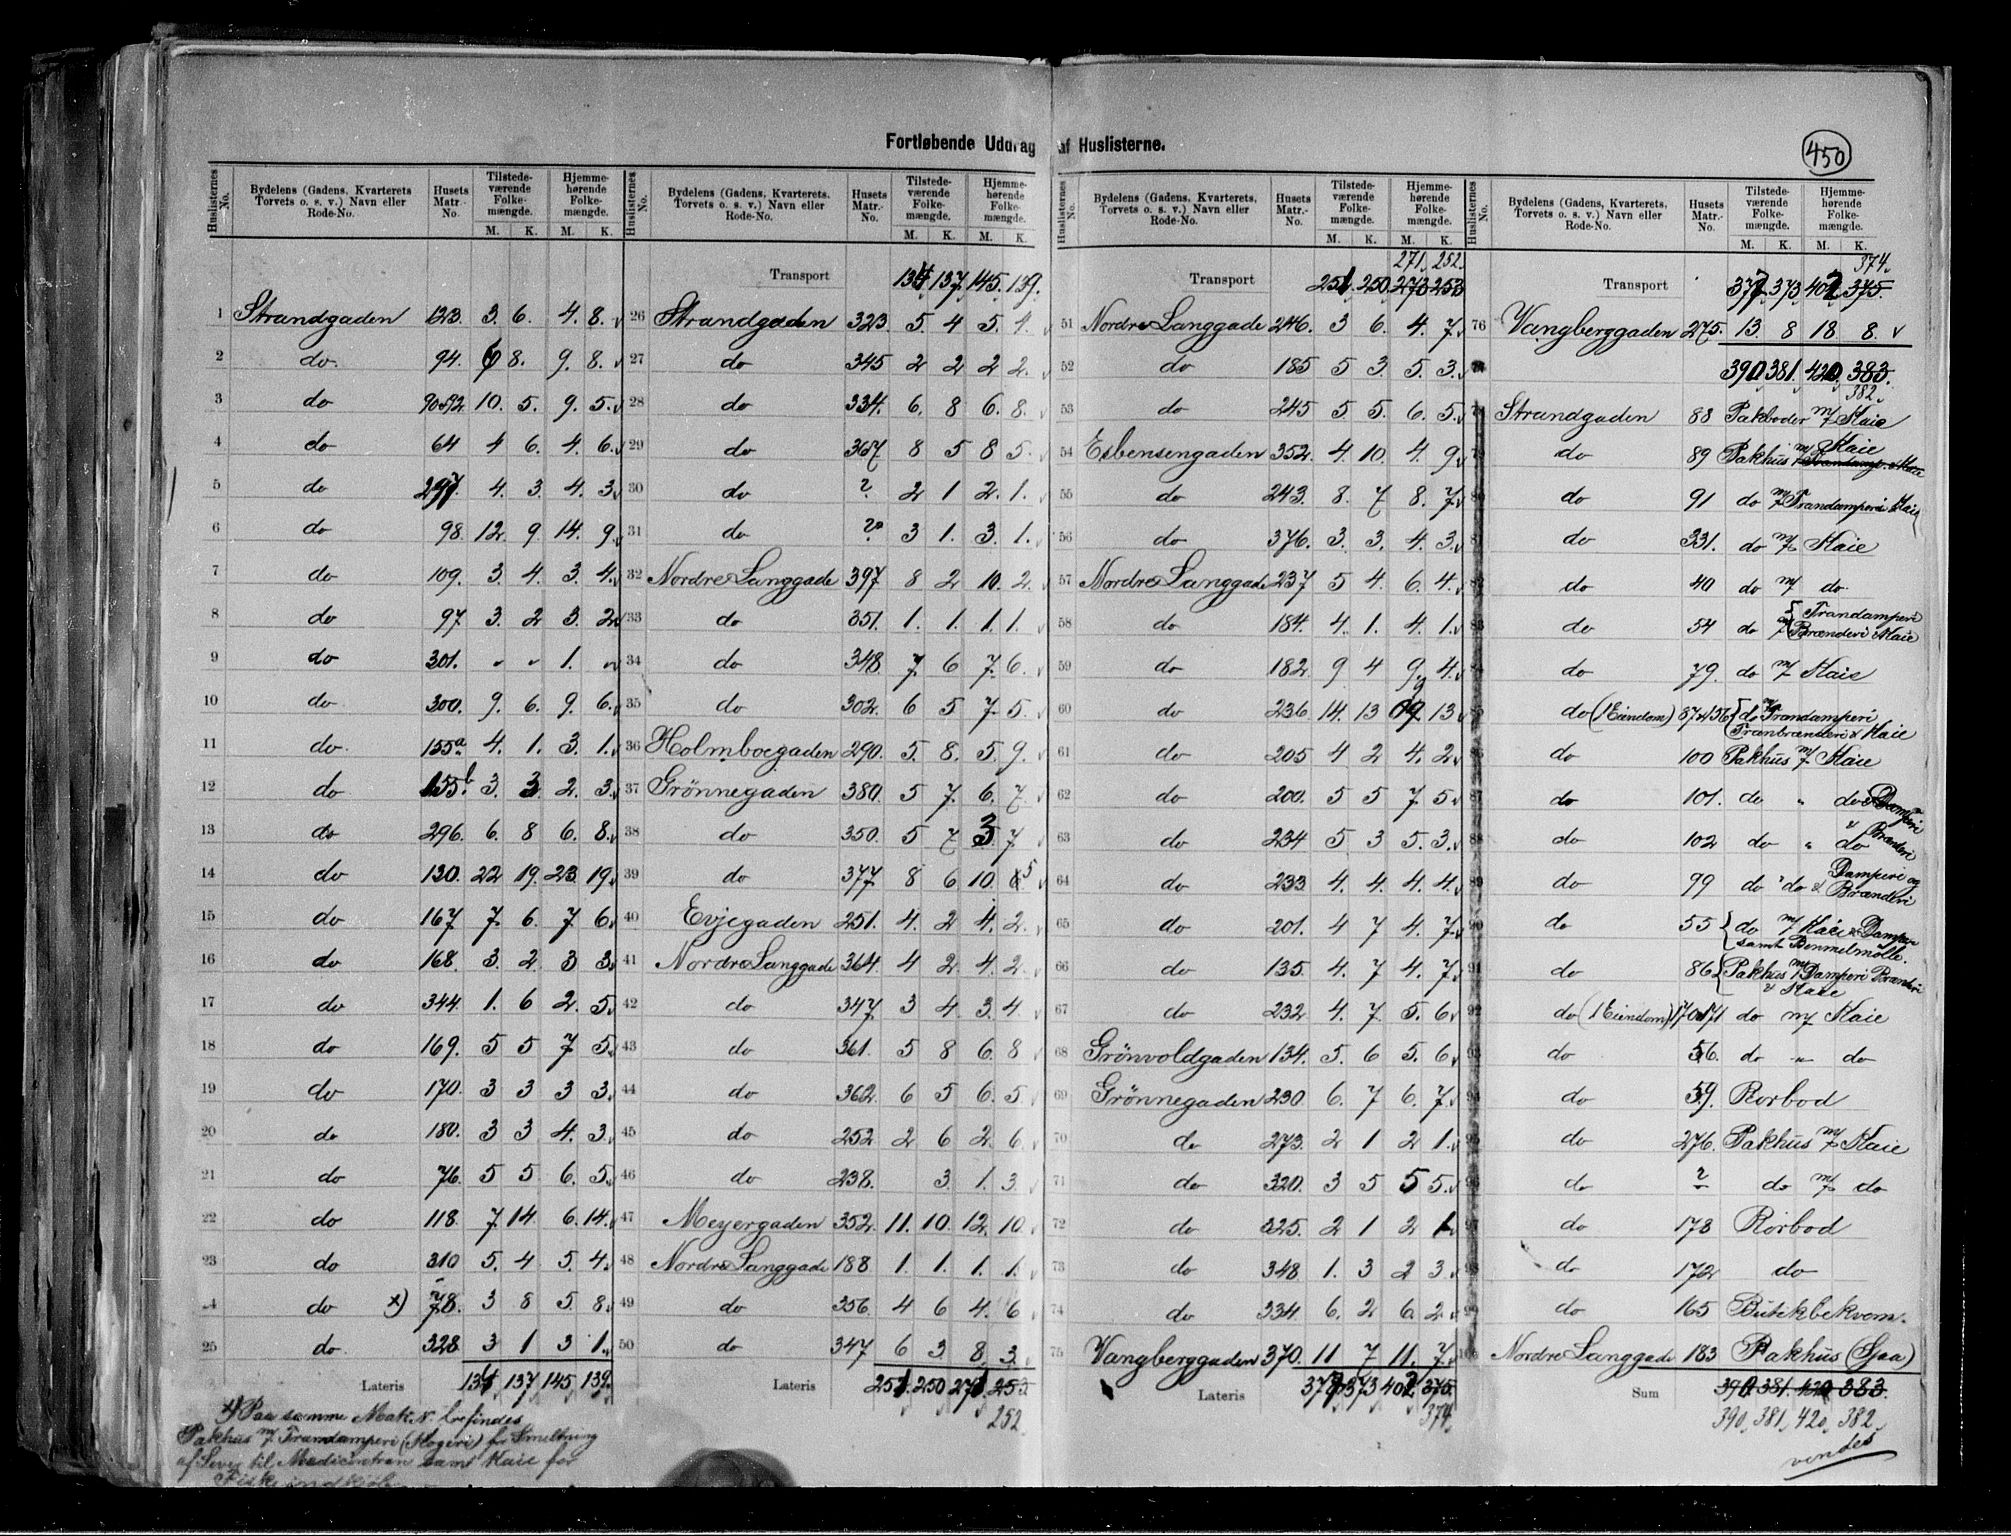 Fortløbende Uddrag af Huslisterne.
450
Huslisternes No. | Bydelens (Gadens, Kvarterets Torvets o. s. v.) Navn eller Rode-No. | Husets Matr.-No. | Tilstedeværende Folkemængde. M. K. | Hjemmehørende Folkemængde. M. K.
1 Strandgaden 123. 3. 6. 4. 8.
2 do. 94. 6 8. 9. 8.
3 do 90-92 10. 5. 9. 5.
4 do 64 4 6. 4. 6.
5 do 297. 4. 3. 4. 3.
6 do 98. 12. 9 14. 9.
7 do 109. 3. 4. 3. 4.
8 do 97 3. 2 3. 2
9 do 301. " " 1. "
10 do 300. 9. 6. 9. 6.
11 do. 155a 4. 1. 3. 1.
12 do 155b 3. 3 2. 3.
13 do 296. 6. 8 6. 8.
14 do 130. 22 19. 23. 19.
15 do 167 7. 6. 7 6.
16 do 168. 3. 2. 3 3.
17 do 344. 1. 6 2. 5.
18 do 169. 5 5 7 5.
19 do 170. 3 3 3 3.
20 do 180. 3 3 4. 3.
21 do 76. 5 5 6. 5.
22 do 118. 7 14 6. 14.
23 do 310 5. 4 5. 4.
do x) 78. 3 8 5. 8.
25 do 328. 3 1 3 1.
Lateris 134 137 145. 139.
x) Paa samme Matr. N. befindes
Pakhus m/ Trandamperi (Kogeri) for Smeltning
af Lever til Medicintran samt Kaie for
Fiske indkjøb
Transport 134 137. 145. 139.
26 Strandgaden 323. 5. 4 5. 4.
27 do 345 2 2 2 2.
28 do 334. 6. 8 6. 8.
29 do 367 8 5 8 5.
30 do ? 2 1 2. 1.
31 do ? 3 1. 3. 1.
32 Nordre Langgade 397 8 2 10. 2.
33 do 351. 1. 1. 1. 1.
34 do 348. 7. 6 7. 6.
35 do 302. 6 5 7. 5.
36 Holmboegaden 290. 5. 8. 5. 9.
37 Grönnegaden 380. 5 7. 6. 7.
38 do 350. 5 7 3 7
39 do 377 8 6 10. 5
40 Evjegaden 251. 4. 2 4. 2.
41 Nordre Langgade 364. 4 2 4. 2.
42 do 347. 3 4. 3. 4
43 do 361. 5 8 6. 8
44 do 362. 6 5 6. 5
45 do 252 2 6 2. 6.
46 do 238. 3 1. 3
47 Meyergaden 352. 11. 10. 12. 10
48 Nordre Langgade 188 1. 1. 1. 1.
49 do 356. 4 6 4. 6
50 do 347 6 3 8. 3.
Lateris 251. 250 271. 253
252
271. 252.
Transport 251. 250. 273 253
51 Nordre Langgade 246. 3 6. 4. 7
52 do 185 5 3. 5. 3.
53 do 245 5 5. 6. 5.
54 Esbensengaden 352. 4. 10. 4. 9
55 do 243. 8. 7 8. 7
56 do 376. 3. 3. 4. 3.
57 Nordre Langgade 237 5 4 6. 4.
58 do 184. 4. 1. 4. 1.
59 do 182 9 4 9. 4.
60 do 236 14. 13 9 13
61 do 205 4 2 4. 2
62 do 200. 5 5 7. 5
63 do 234 5 3 5. 3.
64 do 233 4. 4. 4. 4.
65 do 201. 4 7 4. 7.
66 do 135. 4. 7 4. 7.
67 do 232 4. 7. 5. 6.
68 Grönvoldgaden 134. 5. 6 5. 6
69 Grönnegaden 230 6. 7 6. 7.
70 do 273. 2 1 2 1.
71 do 320. 3 5 5 5.
72 do 325. 2 1 2 1.
73 do 348 1. 3 2 3.
74 do 334 6. 2 6. 2
75 Vangberggaden 370. 11 7 11. 7
Lateris 377 373 402. 375.
374
374.
Transport 377 373 402 375.
76 Vangberggaden 275. 13. 8 18. 8.
390 381. 420. 383.
382.
Strandgaden 88 Pakboder m/ Kaie
do 89 Pakhus m/ Kaie
do 91 do m/ Trandamperi & Kaie
do 331. do m/ Kaie
do 40 do m/ do.
do 54 do m/ { Trandamperi
Brænderi & Kaie
do 79. do m/ Kaie
do (1 Eiendom) 87 & 156 { do m/ Trandamperi
Tranbrænderi & Kaie
do 100 Pakhus m/ Kaie
do 101. do " do & Damperi
do 102 do " do & Brænderi
do 99 do " do & Damperi og
Brænderi
do 55 { do m/ Kaie & Damperi
samt Benmelmølle.
do 86 { Pakhus m/ Damperi Brænderi
& Kaie
92 do (1 Eiendom) 170 & 171 do m/ Kaie
do 56. do " do
do 59. Rorbod
do 276. Pakhus m/ Kaie
do ? do m/ do
do 178 Rorbod
do 172 do
do 165 Butikbekvem.
Nordre Langgade 183 Pakhus (Sjaa)
Sum 390 381. 420 383.
390, 381, 420, 382.
vendes